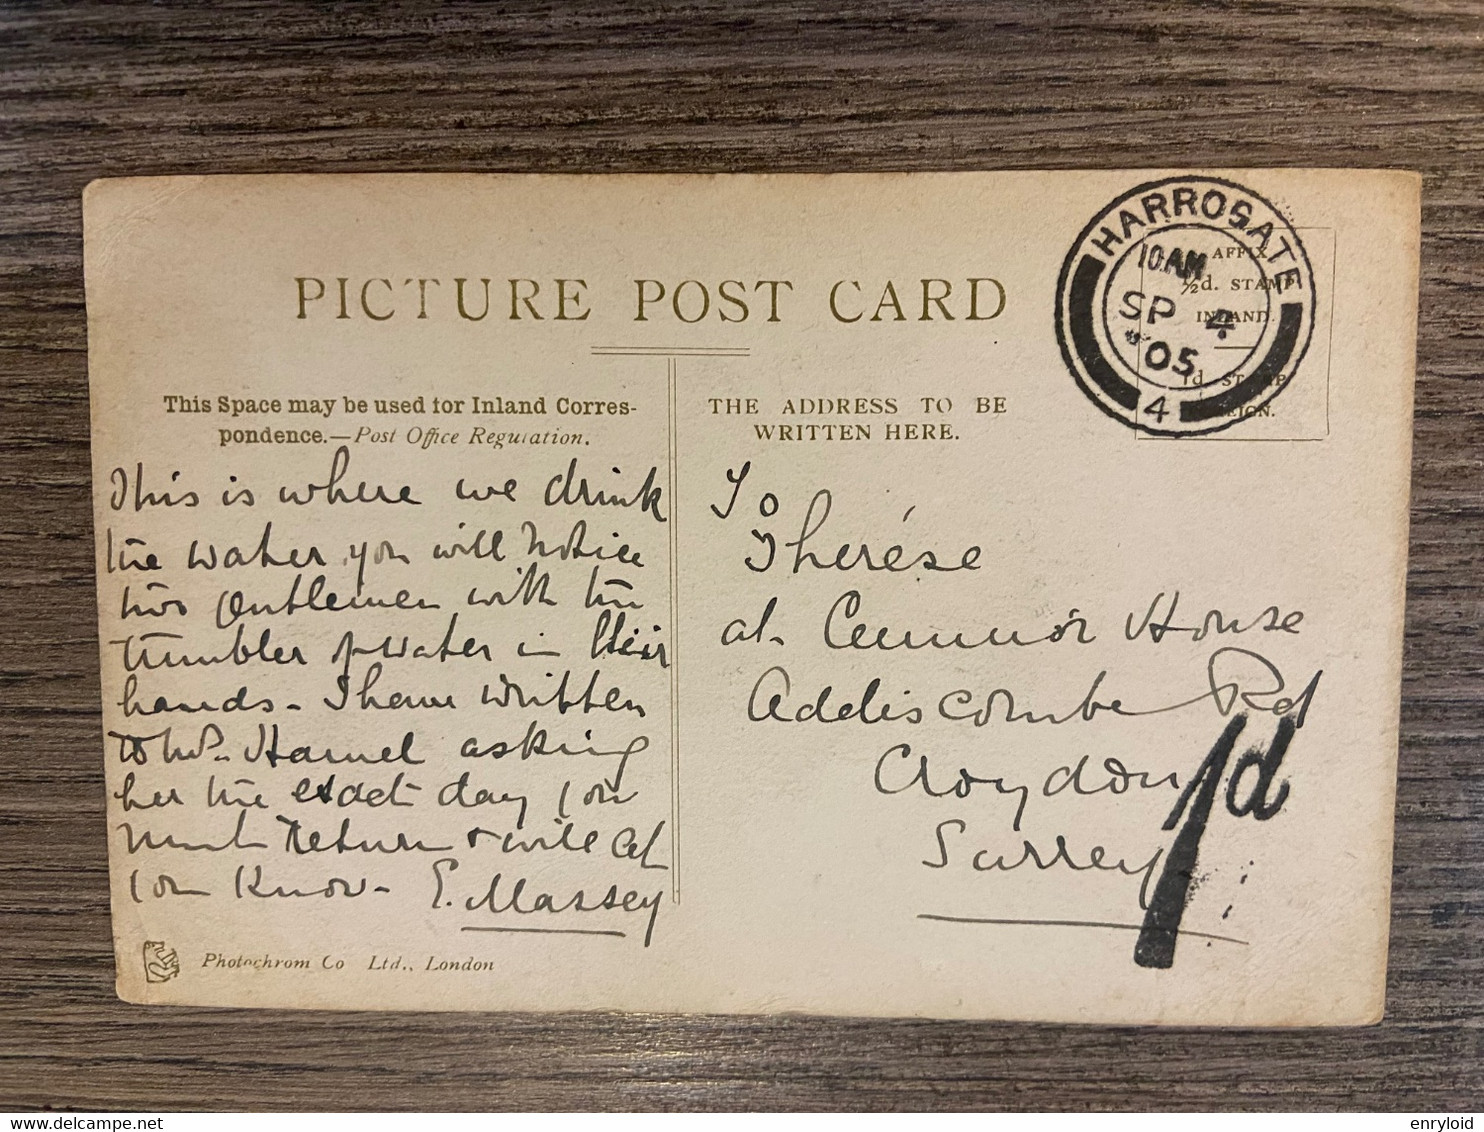 PICTURE POST CARD
This Space may be used for Inland Corres-
pondence.—Post Office Regulation.
This is where we drink
the water, you will notice
two gentlemen with the
tumbler of water in their
hands - I have written
to Mrs. Hamel asking
her the exact day you
must return & will let
you know - E. Massey
Photochrom Co Ltd., London
THE ADDRESS TO BE
WRITTEN HERE.
To
Thérèse
at House
Addiscombe Rd
Croydon
Surrey
HARROGATE
10 AM
SP 4
05
4
AFFIX
½d. STAMP
INLAND.
1d STAMP
FOREIGN.
1d
enryloid